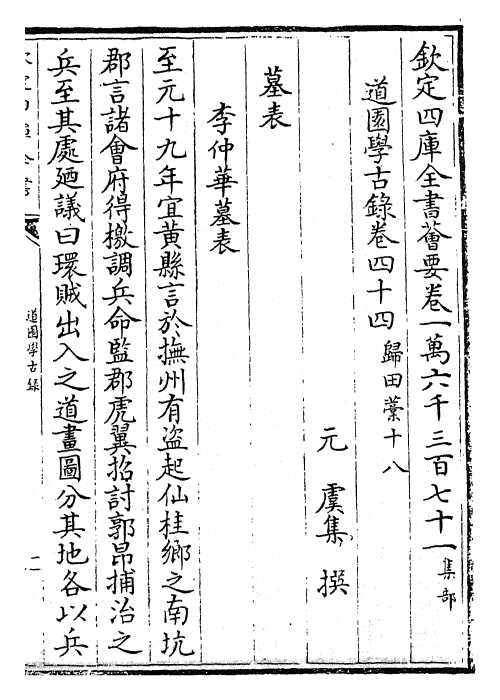 欽定四庫全書薈要卷一萬六千三百七十一集部
道園學古錄卷四十四 歸田藁十八
元 虞集 撰
墓表
李仲華墓表
至元十九年宜黃縣言於撫州有盜起仙桂鄉之南坑
郡言諸會府得檄調兵命監郡虎翼招討郭昂捕治之
兵至其處廼議曰環賊出入之道畫圖分其地各以兵
道園學古錄